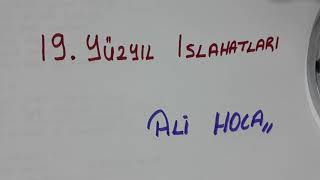 19. YÜZYIL ISLAHATLARI
ALİ HOCA,,